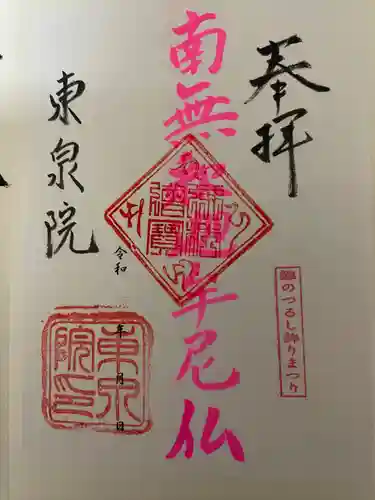 奉拝
雛のつるし飾りまつり
南無釈迦牟尼仏
東泉院
令和 年 月 日
東泉院印